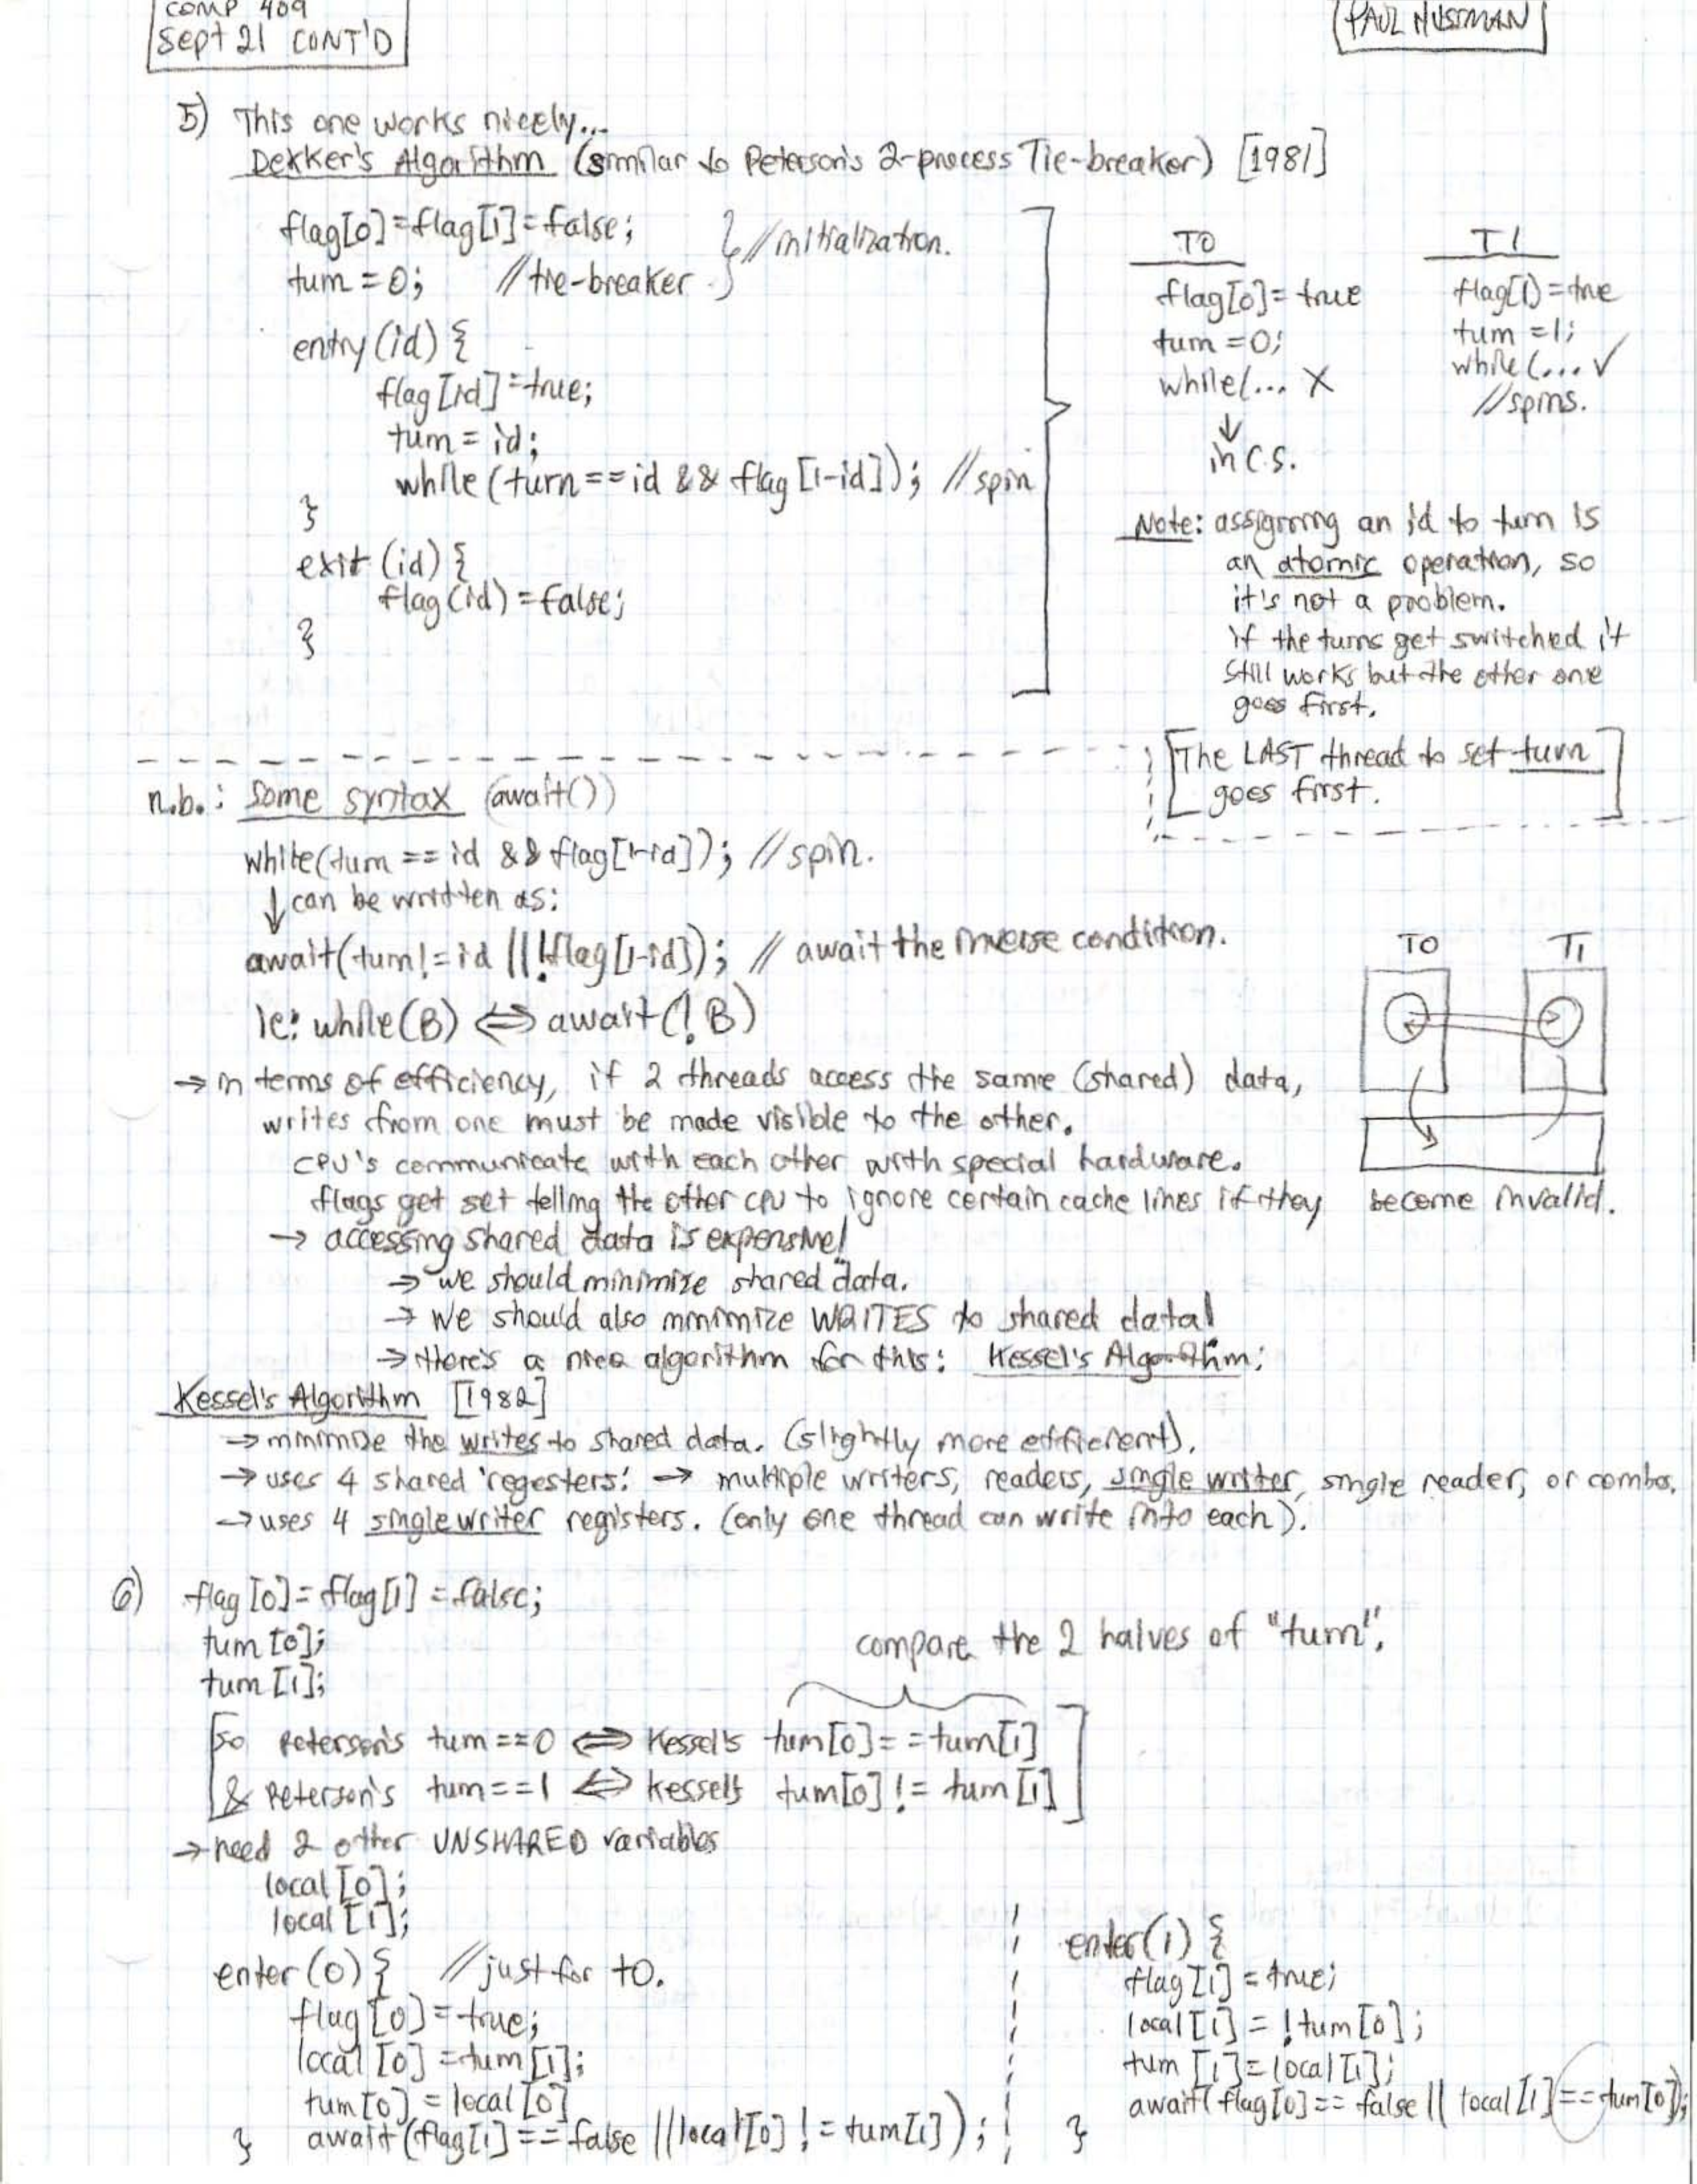 COMP 409
Sept 21 CONT'D
PAUL HUSMAN
5) This one works nicely...
Dekker's Algorithm (similar to Peterson's 2-process Tie-breaker) [1981]
flag[0]=flag[1]=false;
turn = 0; //tie-breaker
} //initialization.
entry(id) {
flag[id]=true;
turn = id;
while(turn==id && flag[1-id]); //spin
}
exit(id) {
flag(id)=false;
}
T0
flag[0]=true
turn=0;
while(... X
↓
in C.S.
T1
flag[1]=true
turn=1;
while(... ✓
//spins.
Note: assigning an id to turn is
an atomic operation, so
it's not a problem.
if the turns get switched it
still works but the other one
goes first.
[The LAST thread to set turn
goes first.]
n.b.: Some syntax (await())
while(turn == id && flag[1-id]); //spin.
↓ can be written as:
await(turn!=id || !flag[1-id]); // await the inverse condition.
ie: while(B) ⇔ await(!B)
T0 T1
→ in terms of efficiency, if 2 threads access the same (shared) data,
writes from one must be made visible to the other.
CPU's communicate with each other with special hardware.
flags get set telling the other cpu to ignore certain cache lines if they become invalid.
→ accessing shared data is expensive!
→ we should minimize shared data.
→ we should also minimize WRITES to shared data!
→ there's a nice algorithm for this: Kessel's Algorithm:
Kessel's Algorithm [1982]
→ minimize the writes to shared data. (slightly more efficient).
→ uses 4 shared 'regesters' → multiple writers, readers, single writer, single reader, or combos.
→ uses 4 single writer registers. (only one thread can write into each).
6) flag[0]=flag[1]=false;
turn[0];
turn[1];
compare the 2 halves of "turn".
[So Peterson's turn==0 ⇔ Kessel's turn[0]==turn[1]
& Peterson's turn==1 ⇔ Kessel's turn[0] != turn[1]]
→ need 2 other UNSHARED variables
local[0];
local[1];
enter(0) { //just for t0.
flag[0]=true;
local[0]=turn[1];
turn[0]=local[0]
await(flag[1]==false || local[0] != turn[1]);
}
enter(1) {
flag[1]=true;
local[1] = !turn[0];
turn[1]=local[1];
await(flag[0]==false || local[1]==turn[0]);
}